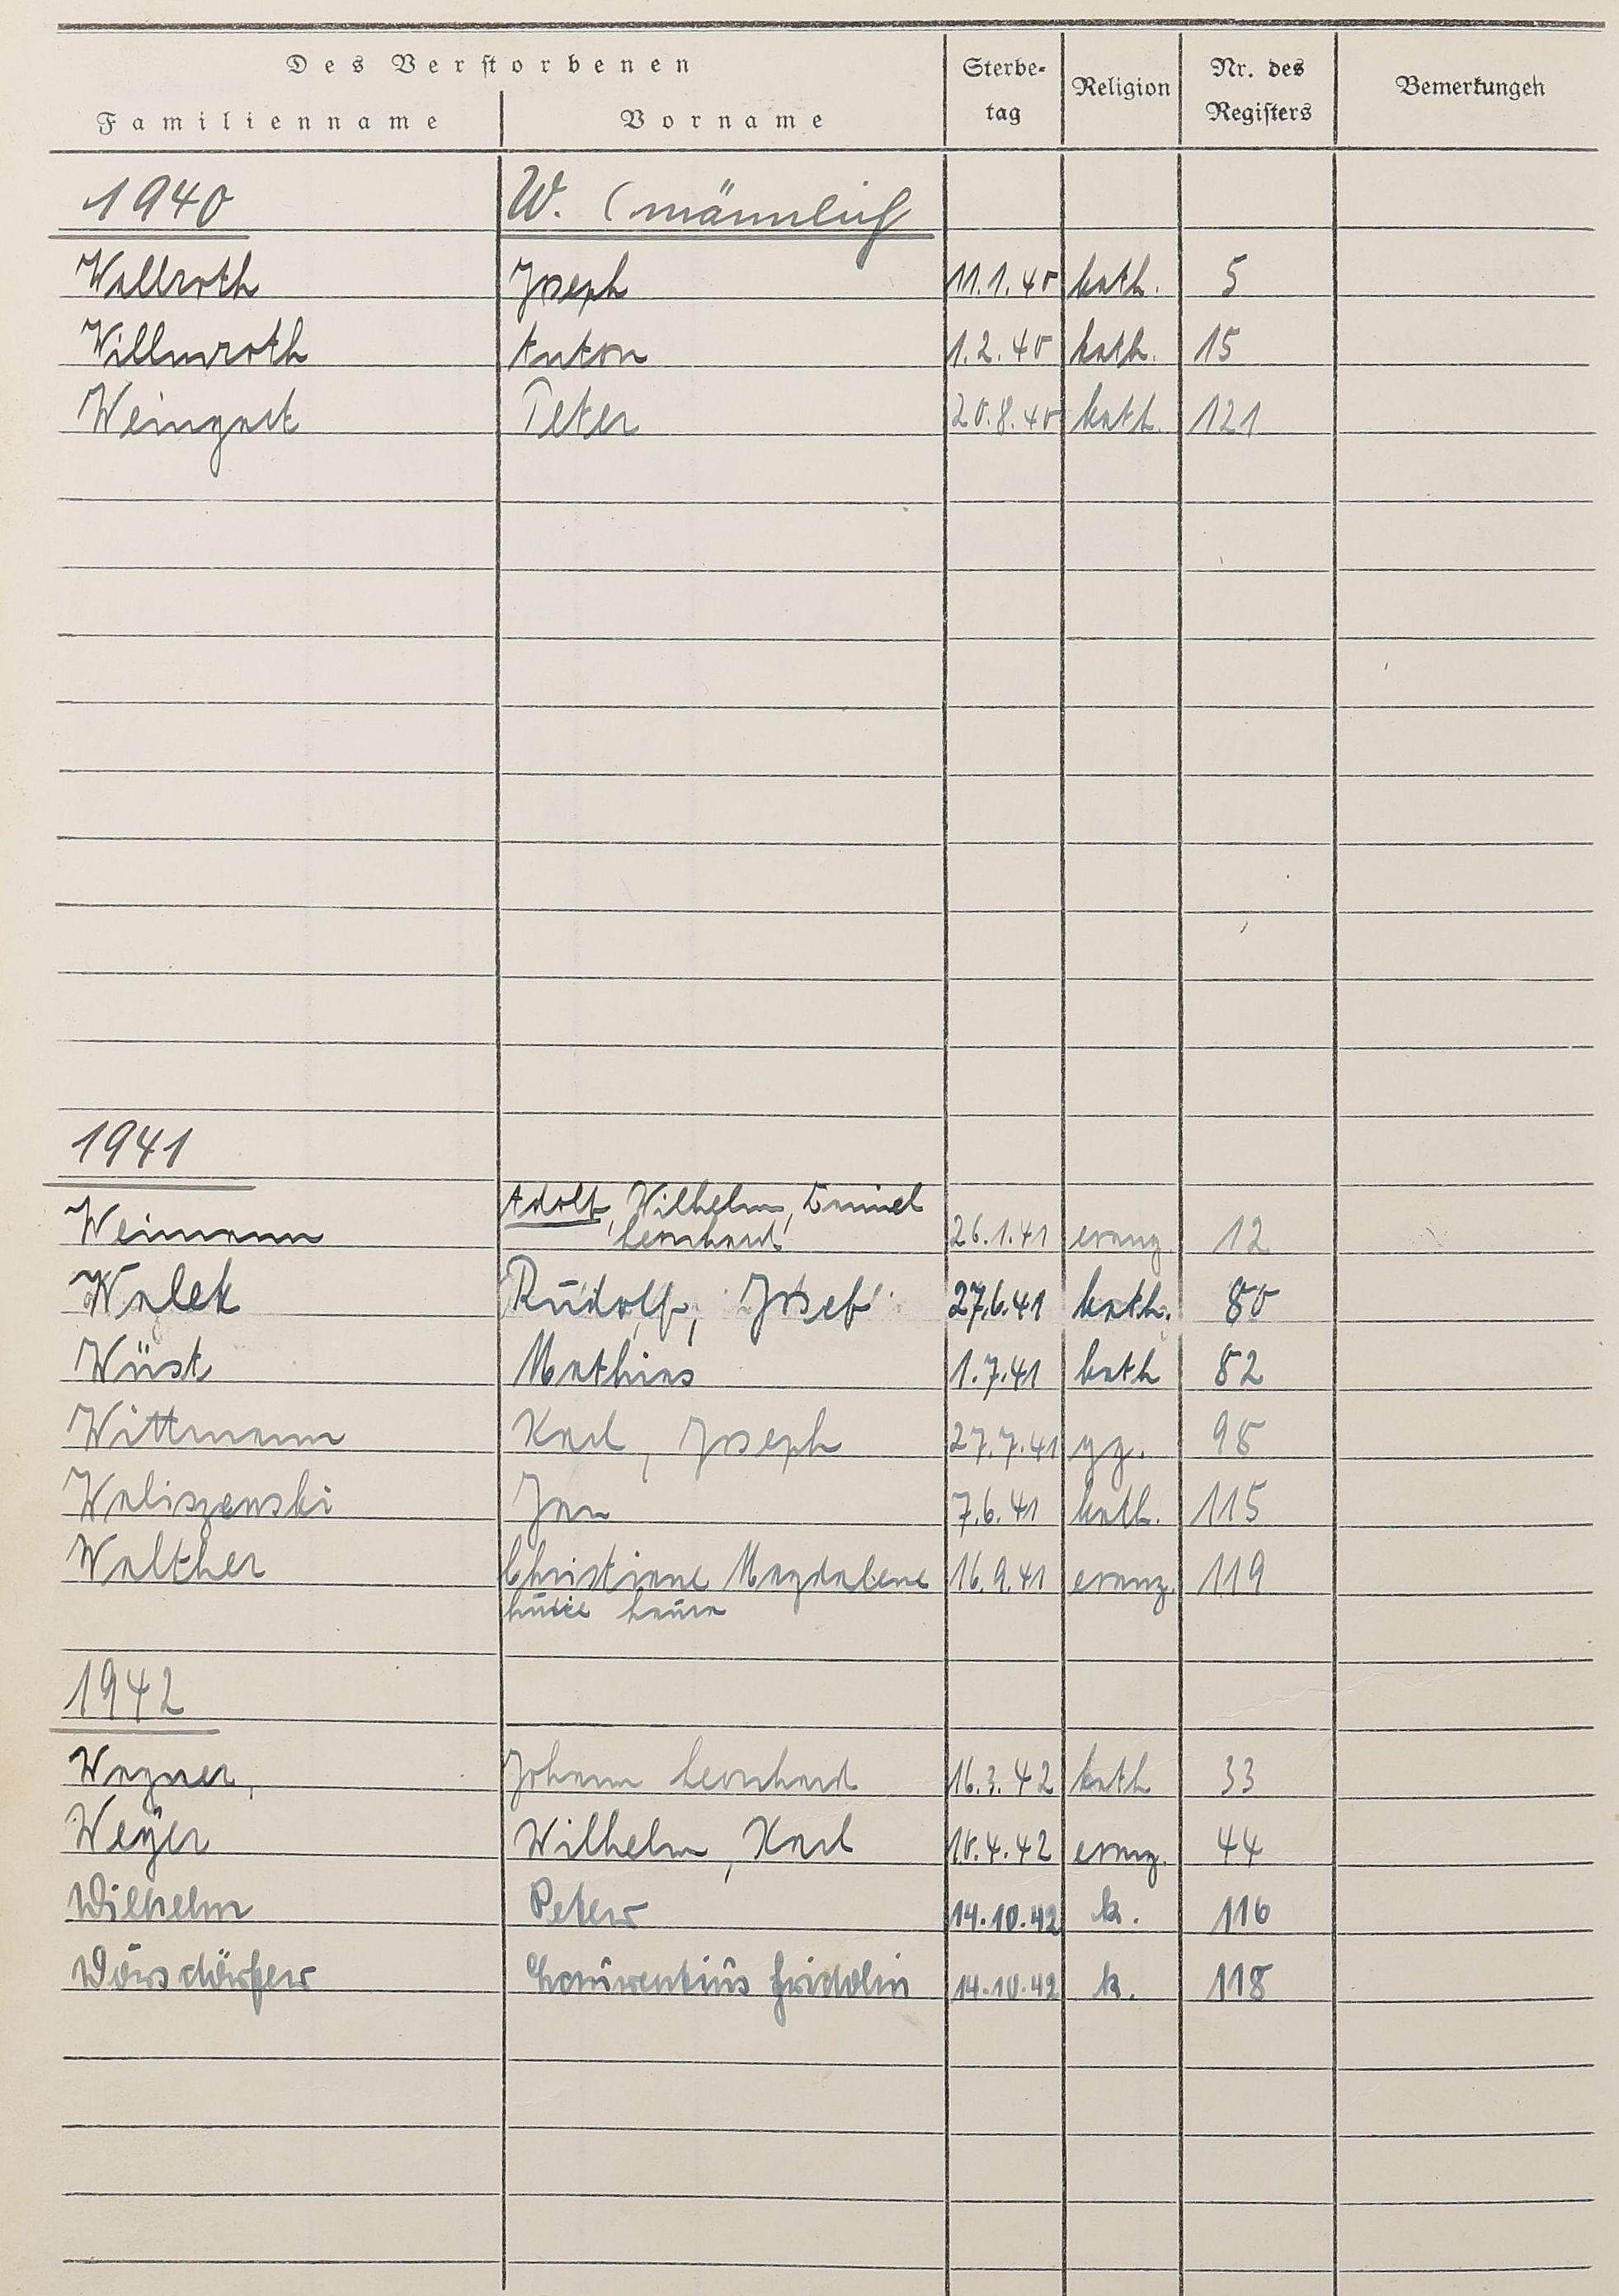 Des Verstorbenen
Familienname Vorname Sterbe-tag Religion Nr. des Registers Bemerkungen
1940 W. (männlich
Wallroth Joseph 11.1.40 kath. 5
Willmroth Anton 1.2.40 kath. 15
Weingart Peter 20.8.40 kath. 121
1941
Adolf, Wilhelm, Daniel
Weimann Leonhard 26.1.41 evang. 12
Walek Rudolf, Josef 27.6.41 kath. 80
Wüst Mathias 1.7.41 kath 82
Wittmann Karl, Joseph 27.7.41 gg. 98
Waliszewski Jan 7.6.41 kath. 115
Walther Christiane Magdalene 16.9.41 evang. 119
Luise Laura
1942
Wagner, Johann Leonhard 16.3.42 kath 33
Weyer Wilhelm, Karl 10.4.42 evang. 44
Wilhelm Peter 14.10.42 k. 116
Wörsdörfer Laurentius Fridolin 14.10.42 k. 118